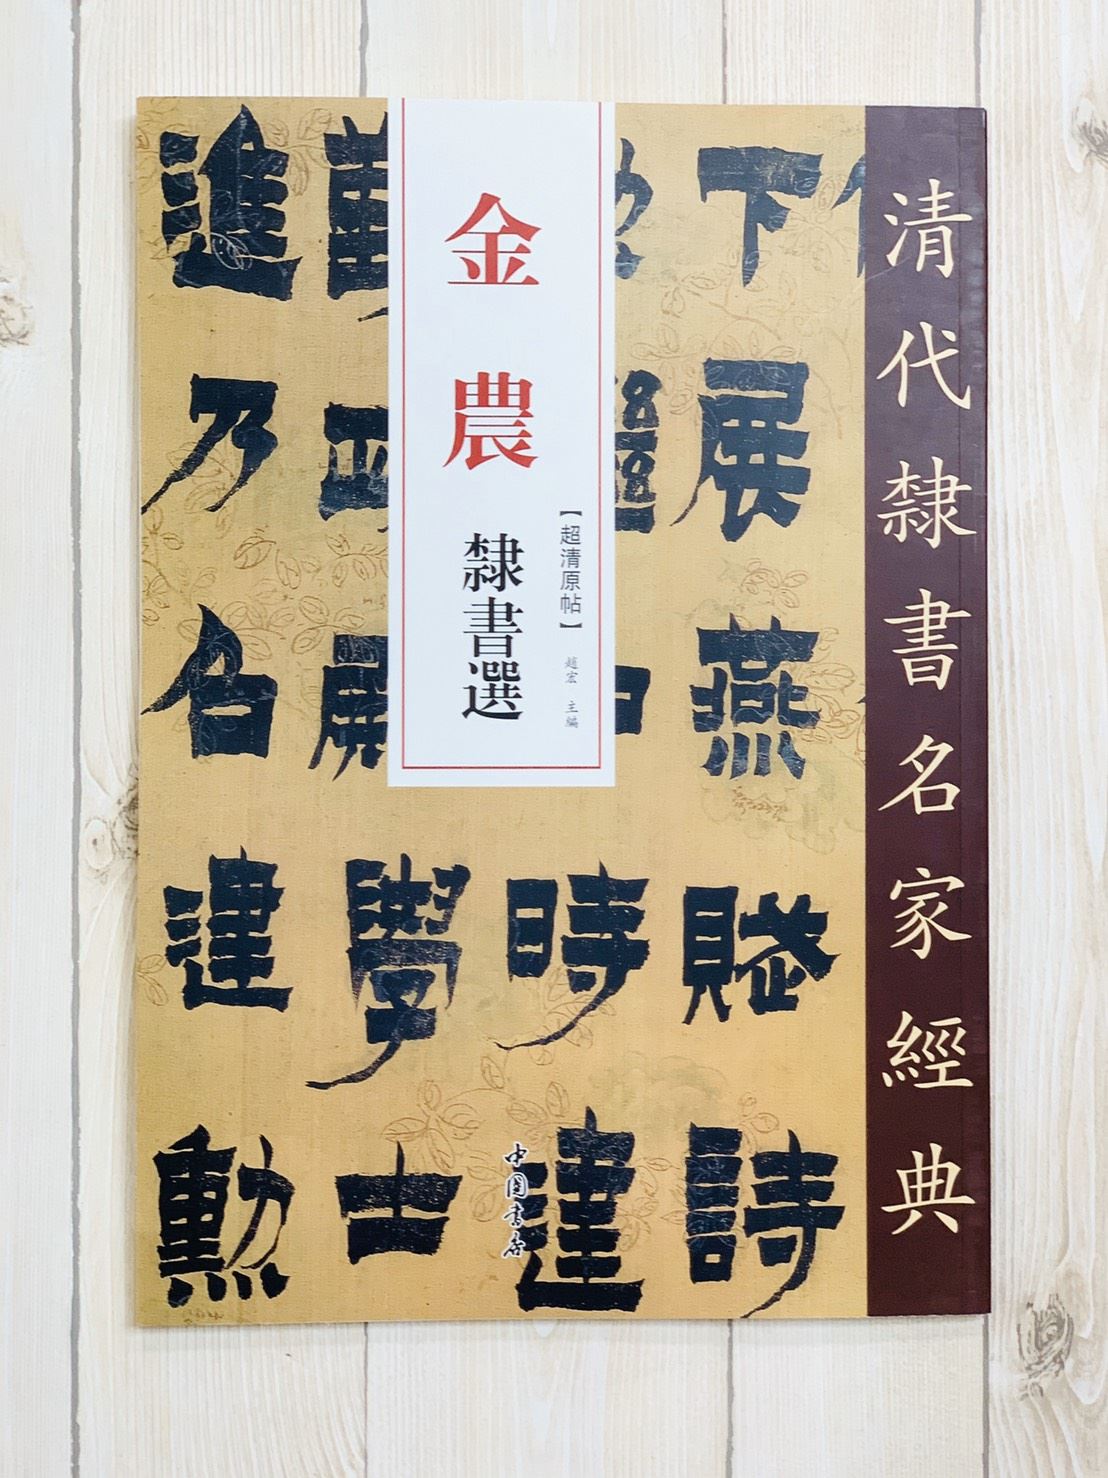 清代隸書名家經典
金農
隸書選
【超清原帖】
趙宏 主編
下展燕賦詩
時達
學士
進乃名建勳
中國書店